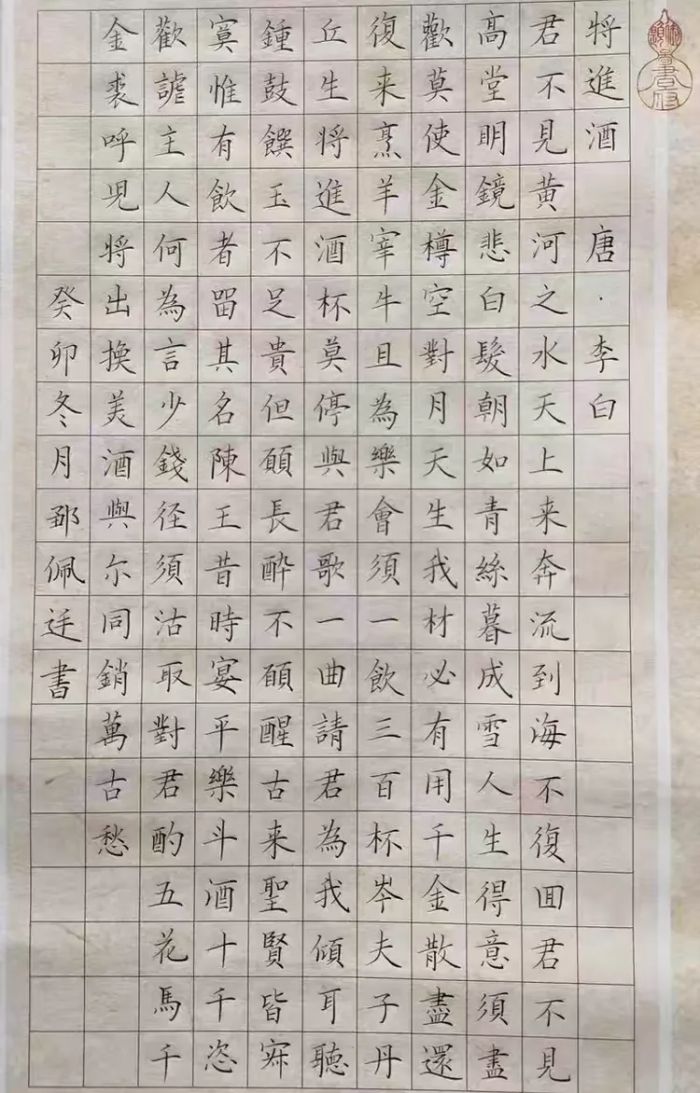 將進酒 唐·李白
君不見黃河之水天上来奔流到海不復回君不見
高堂明鏡悲白髮朝如青絲暮成雪人生得意須盡
歡莫使金樽空對月天生我材必有用千金散盡還
復来烹羊宰牛且為樂會須一飲三百杯岑夫子丹
丘生將進酒杯莫停與君歌一曲請君為我傾耳聽
鍾鼓饌玉不足貴但願長醉不願醒古来聖賢皆寂
寞惟有飲者留其名陳王昔時宴平樂斗酒十千恣
歡謔主人何為言少錢径須沽取對君酌五花馬千
金裘呼兒將出換美酒與尔同銷萬古愁
癸卯冬月 佩廷書